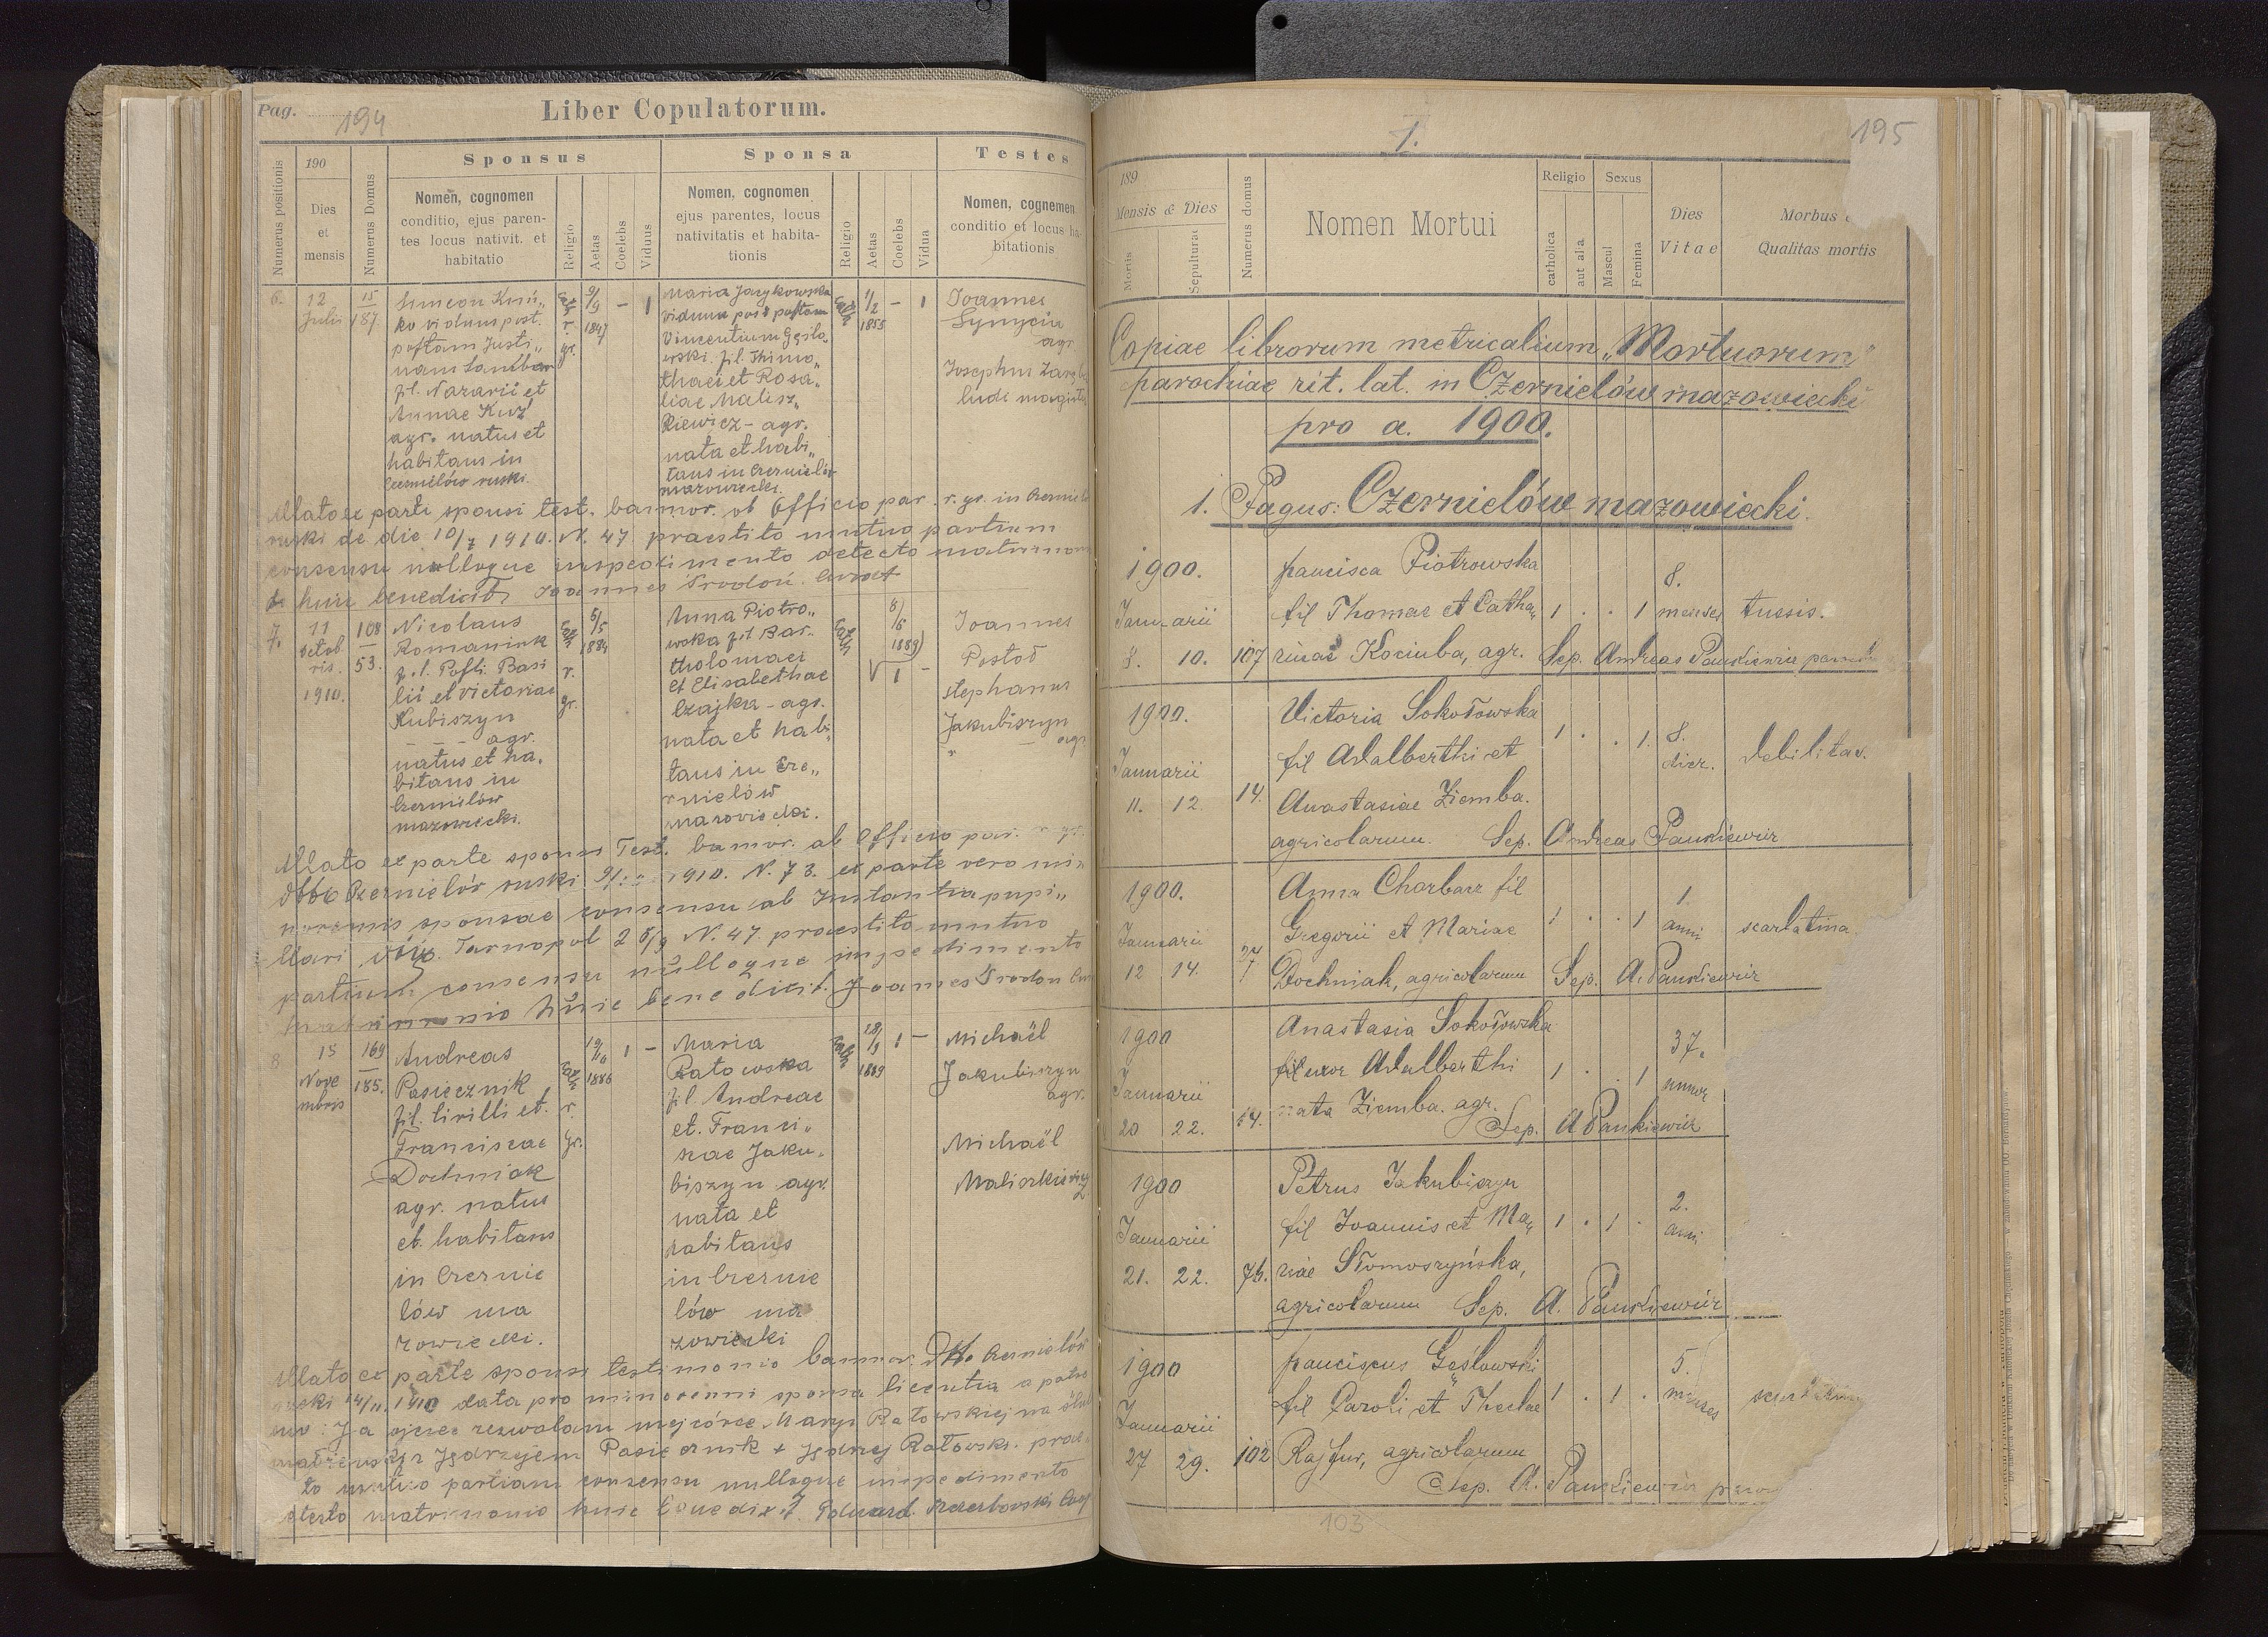 Pag. 194
Liber Copulatorum.
Numerus positionis
190
Dies
et
mensis
Numerus Domus
Sponsus
Nomen, cognomen
conditio, ejus paren-
tes locus nativit. et
habitatio
Religio
Aetas
Coelebs
Viduus
Sponsa
Nomen, cognomen
ejus parentes, locus
nativitatis et habita-
tionis
Religio
Aetas
Coelebs
Vidua
Testes
Nomen, cognomen
conditio et locus ha-
bitationis
6.
12
Julii
15
187.
Simeon
ko viduus post.
Justi„
nam
fil. Nazarii et
Annae Kuź
agr. natus et
habitans in
Czernilów ruski.
r.
gr.
9/9
1847
–
1
Maria Jazykowska
vidua
Vincentium
fil. Thimo„
thaei et Rosa„
liae Malisz„
kiewicz – agr.
nata et habi„
tans in Czernielów
mazowiecki.
1/2
1855
–
1
Joannes
agr.
Josephus
ludi magister
Allato ex parte sponsi test. bannor. ob Officio par. r. gr. in Czerniel
ruski de die 10/7 1910. N. 47 praestito mutuo partium
consensu nulloque impedimento detecto matrimon
huic benedicit Joannes Srodoń
7.
11
Octob
ris.
1910.
108
53.
Nicolaus
Romaniuk
fil. Basi
lii et Victoriae
Kubiszyn
– – – agr.
natus et ha.
bitans in
Czernilów
mazowiecki.
r.
gr.
5/5
1884
Anna Piotro„
wska fil Bar„
tholomaei
et Elisabethae
Czajka – agr.
nata et habi„
tans in Cze„
rnielów
mazowiecki.
8/6
1889
1
–
Joannes
Postoł
Stephanus
Jakubiszyn
" – agr.
Allato ex parte sponsi Test. bannor. ab Officio par. r. gr.
Czernielów ruski 1910. N. 73. ex parte vero mi
norennis sponsae consensu ab Instantia pupi„
llari Tarnopol N. 47. praestito mutuo
partium consensu nulloque impedimento
matrimonio huic bene dicit. Joannes Srodon
8
15
Nove
mbris
169
185.
Andreas
Pasiecznik
fil. Cirilli et.
Franciscae
Dochniak
agr. natus
et habitans
in Czernie
lów ma
zowiecki.
r.
gr.
19/10
1886
1
–
Maria
Ratowska
fil. Andreae
et. Franci„
scae Jaku„
biszyn agr.
nata et
habitans
in Czernie
lów ma
zowiecki
28/9
1889
1
–
Michaël
Jakubiszyn
agr.
Michaël
Maliszkiewicz
Allato ex parte sponsi testimonio bannor. Czernielów
ruski 14/11. 1910 data pro minorenni sponsa licentia a patre
Ja ojciec zezwalam mej córce Maryi Ratowskiej na ślub
małżeński z Jędrzejem Pasiecznik + Jędrzej Ratowski. prae
to mutuo partium consensu nulloque impedimento
detecto matrimonio huic benedixit. Eduard
1.
195
189
Mensis & Dies
Mortis
Sepulturae
Numerus domus
Nomen Mortui
Religio
catholica
aut alia
Sexus
Mascul
Femina
Dies
Vitae
Morbus
Qualitas mortis
Copiae librorum metricalium „Mortuorum"
parochiae rit. lat. in Czernielów mazowiecki
pro a. 1900.
1. Pagus: Czernielów mazowiecki.
1900.
Januarii
8. 10.
107
Francisca Piotrowska
fil Thomae et Catha„
rinae Kociuba, agr.
1 . . 1
8.
menses
tussis.
Sep. Andreas Pankiewicz
1900.
Januarii
11. 12.
14.
Victoria Sokołowska
fil Adalberthi et
Anastasiae Ziemba.
agricolarum.
1 . . 1.
8.
dier.
debilitas.
Sep. Andreas Pankiewicz
1900.
Januarii
12 14.
Anna Charbarz fil
Gregorii et Mariae
Dochniak, agricolarum
1 . . 1
1.
anni
scarlatina.
Sep. A. Pankiewicz
1900
Januarii
20 22.
14.
Anastasia Sokołowska
uxor Adalberthi
nata Ziemba. agr.
1 . . 1
37.
annor
Sep. A Pankiewicz
1900
Januarii
21. 22.
Petrus Jakubiszyn
fil Joannis et Ma„
riae Słomoszyńska,
agricolarum
1 . 1 .
2.
anni
Sep. A. Pankiewicz
1900
Januarii
27 29.
102
Franciscus Gęsłowski
fil Caroli et Theclae
Rajfur, agricolarum
1 . 1 .
5.
menses
Sep. A. Pankiewicz
103